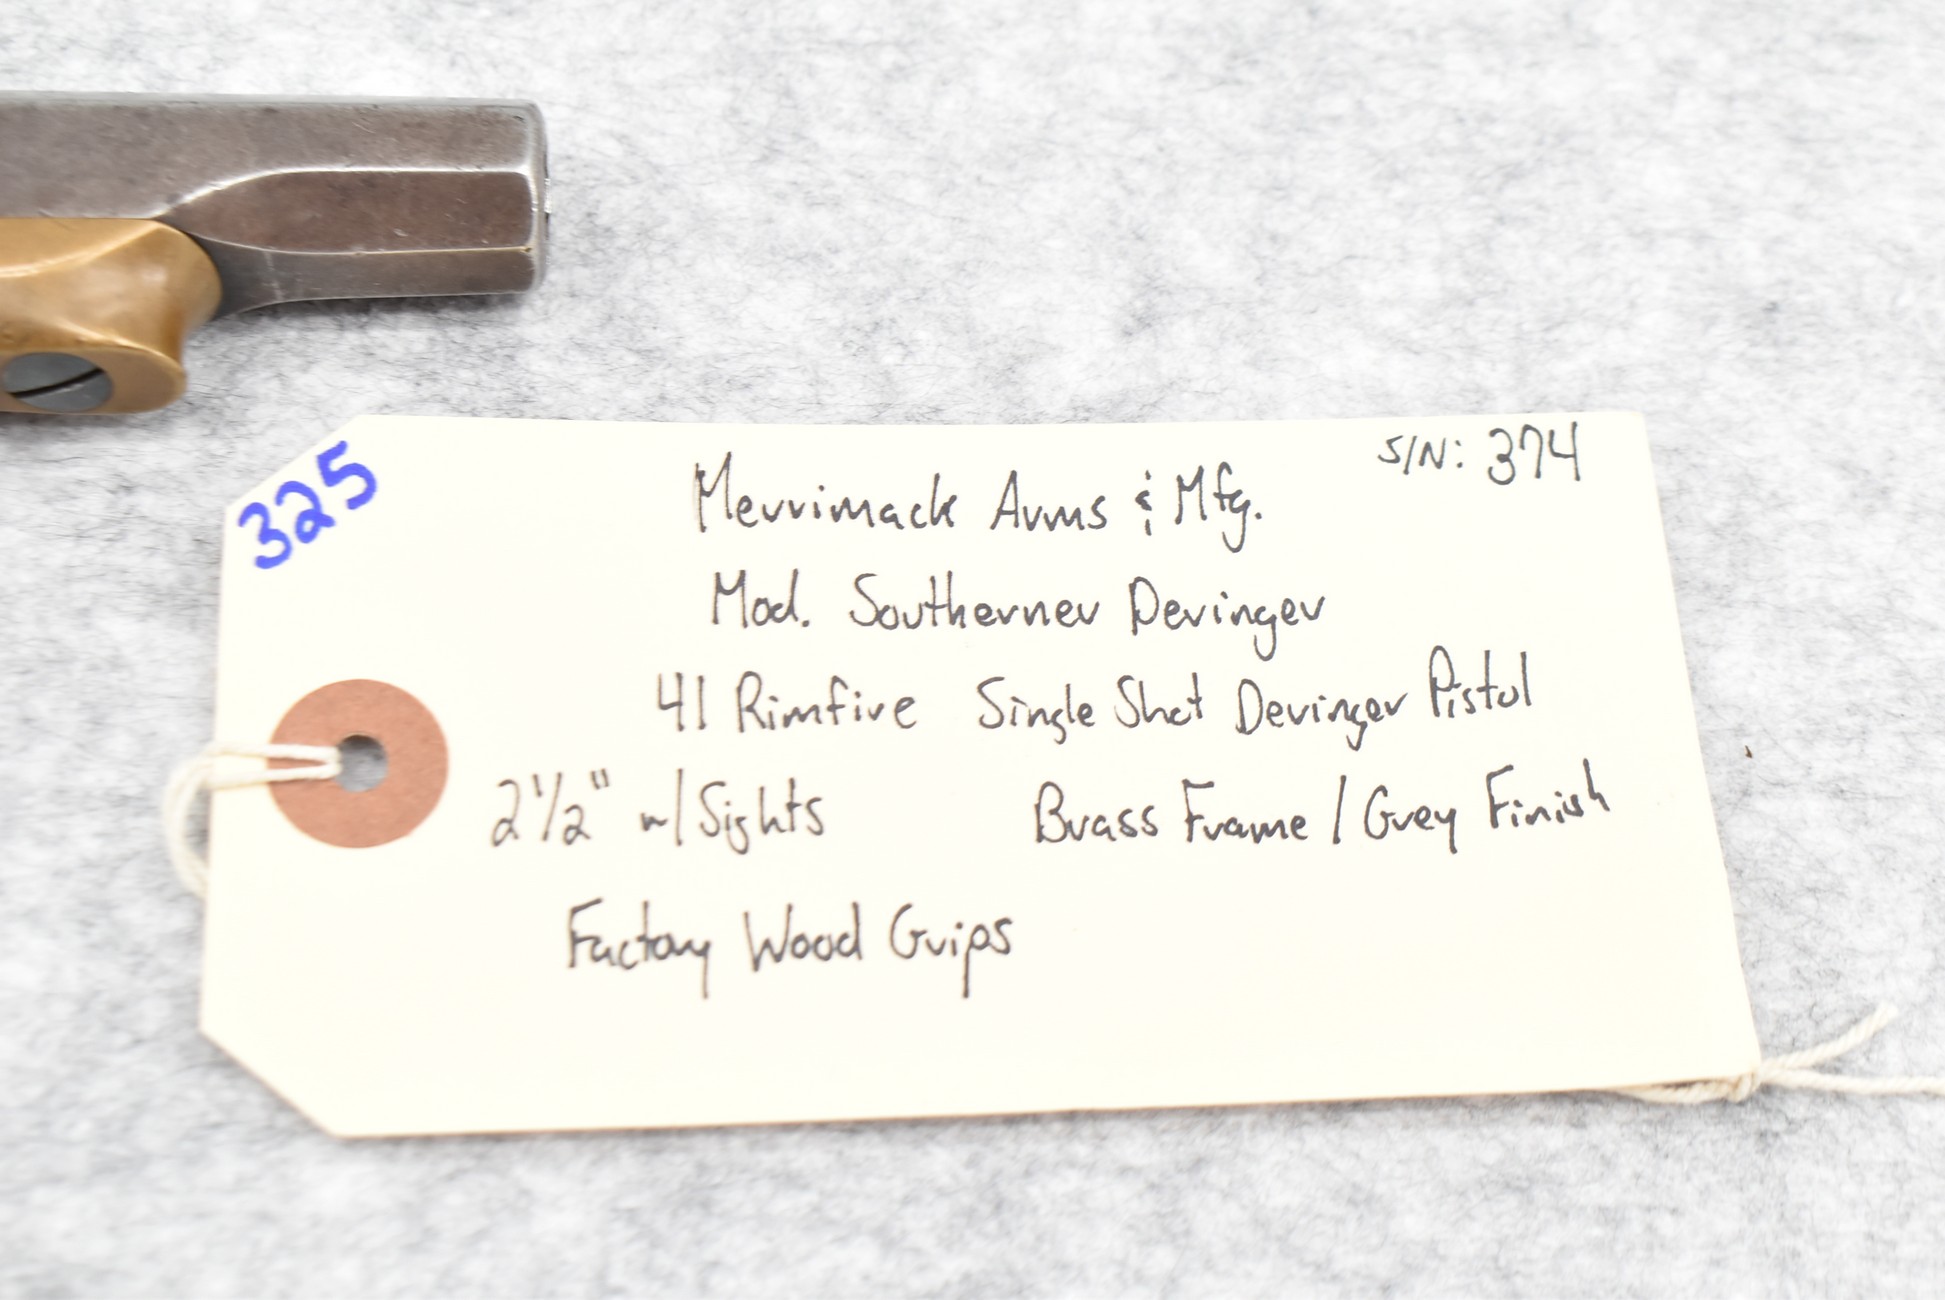 325
S/N: 374
Merrimack Arms & Mfg.
Mod. Southerner Deringer
41 Rimfire Single Shot Deringer Pistol
2 1/2" w/ Sights Brass Frame / Grey Finish
Factory Wood Grips